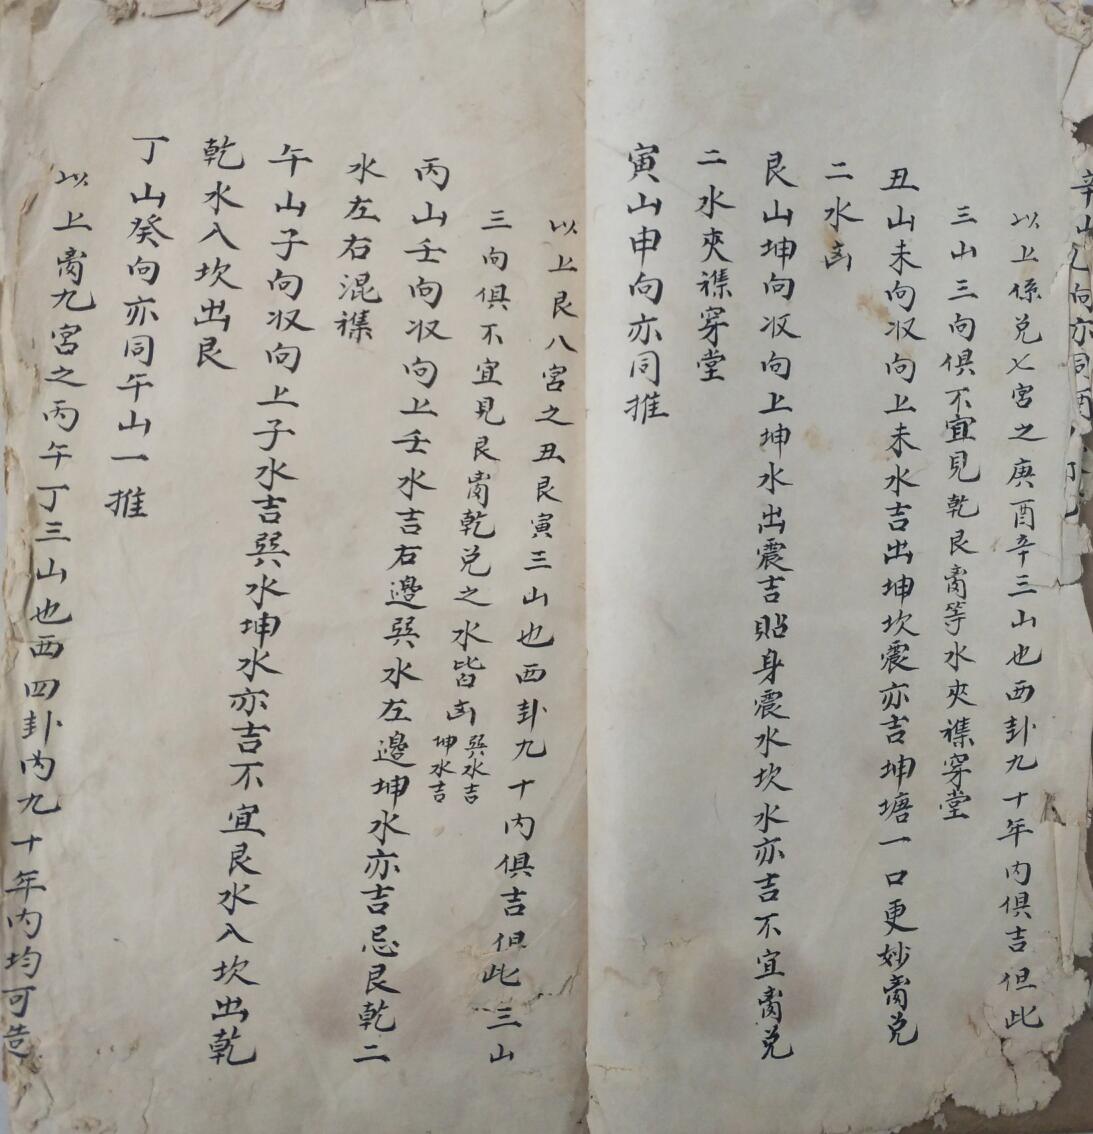 辛山乙向亦同酉
以上係兑七宮之庚酉辛三山也西卦九十年内俱吉但此
三山三向俱不宜見乾艮离等水夾襍穿堂
丑山未向収向上未水吉出坤坎震亦吉坤塘一口更妙离兑
二水凶
艮山坤向収向上坤水出震吉貼身震水坎水亦吉不宜离兑
二水夾襍穿堂
寅山申向亦同推
以上艮八宮之丑艮寅三山也西卦九十内俱吉但此三山
三向俱不宜見艮离乾兑之水皆凶
巽水吉
坤水吉
丙山壬向収向上壬水吉右邊巽水左邊坤水亦吉忌艮乾二
水左右混襍
午山子向収向上子水吉巽水坤水亦吉不宜艮水入坎出乾
乾水入坎出艮
丁山癸向亦同午山一推
以上离九宮之丙午丁三山也西四卦内九十年内均可造